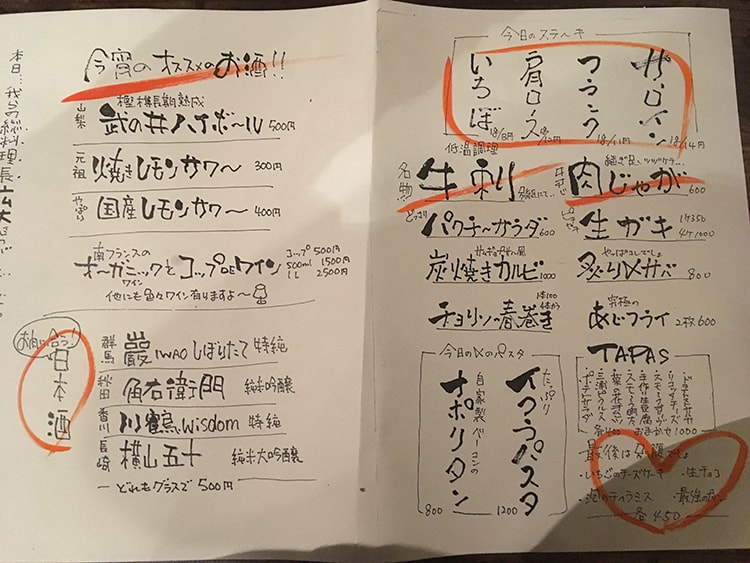 今宵のオススメのお酒!!
山梨
樽橅長期熟成
武の井ハイボール 500円
元祖
焼きレモンサワ〜 300円
やっぱり
国産レモンサワ〜 400円
南フランスの
オーガニックとコップDEワイン
ワイン
コップ 500円
500ml 1500円
1L 2500円
他にも色々ワイン有りますよ〜
お肉に合う!
日本酒
群馬 巖 IWAO しぼりたて 特純
秋田 角右衛門 純米吟醸
香川 川鶴 wisdom 特純
長崎 横山五十 純米大吟醸
ーどれもグラスで500円ー
今日のステーキ
サーロイン
1g/14円
フランク
1g/11円
肩ロース
1g/12円
いちぼ
1g/8円
低温調理
名物!
牛刺
牛すじ
肉じゃが 600
どっさり
パクチーサラダ 600
生ガキ
1ケ350
炭焼きカルビ 1000
やっぱコレでしょ
炙り〆サバ 800
チョリソー春巻き
究極の
あじフライ 2枚600
今日の〆のパスタ
たっぷり
イクラパスタ
1200
自家製ベーコンの
ナポリタン
800
TAPAS
リコッタチーズ
スモークサーモン
手作り豆腐
スモーク明太
菜の花
三浦ピクルス
ポテトサラダ
各400 おまかせ1000
最後は別腹でしょ
・いちごのチーズケーキ
・生チョコ
ティラミス
・最強の
各450